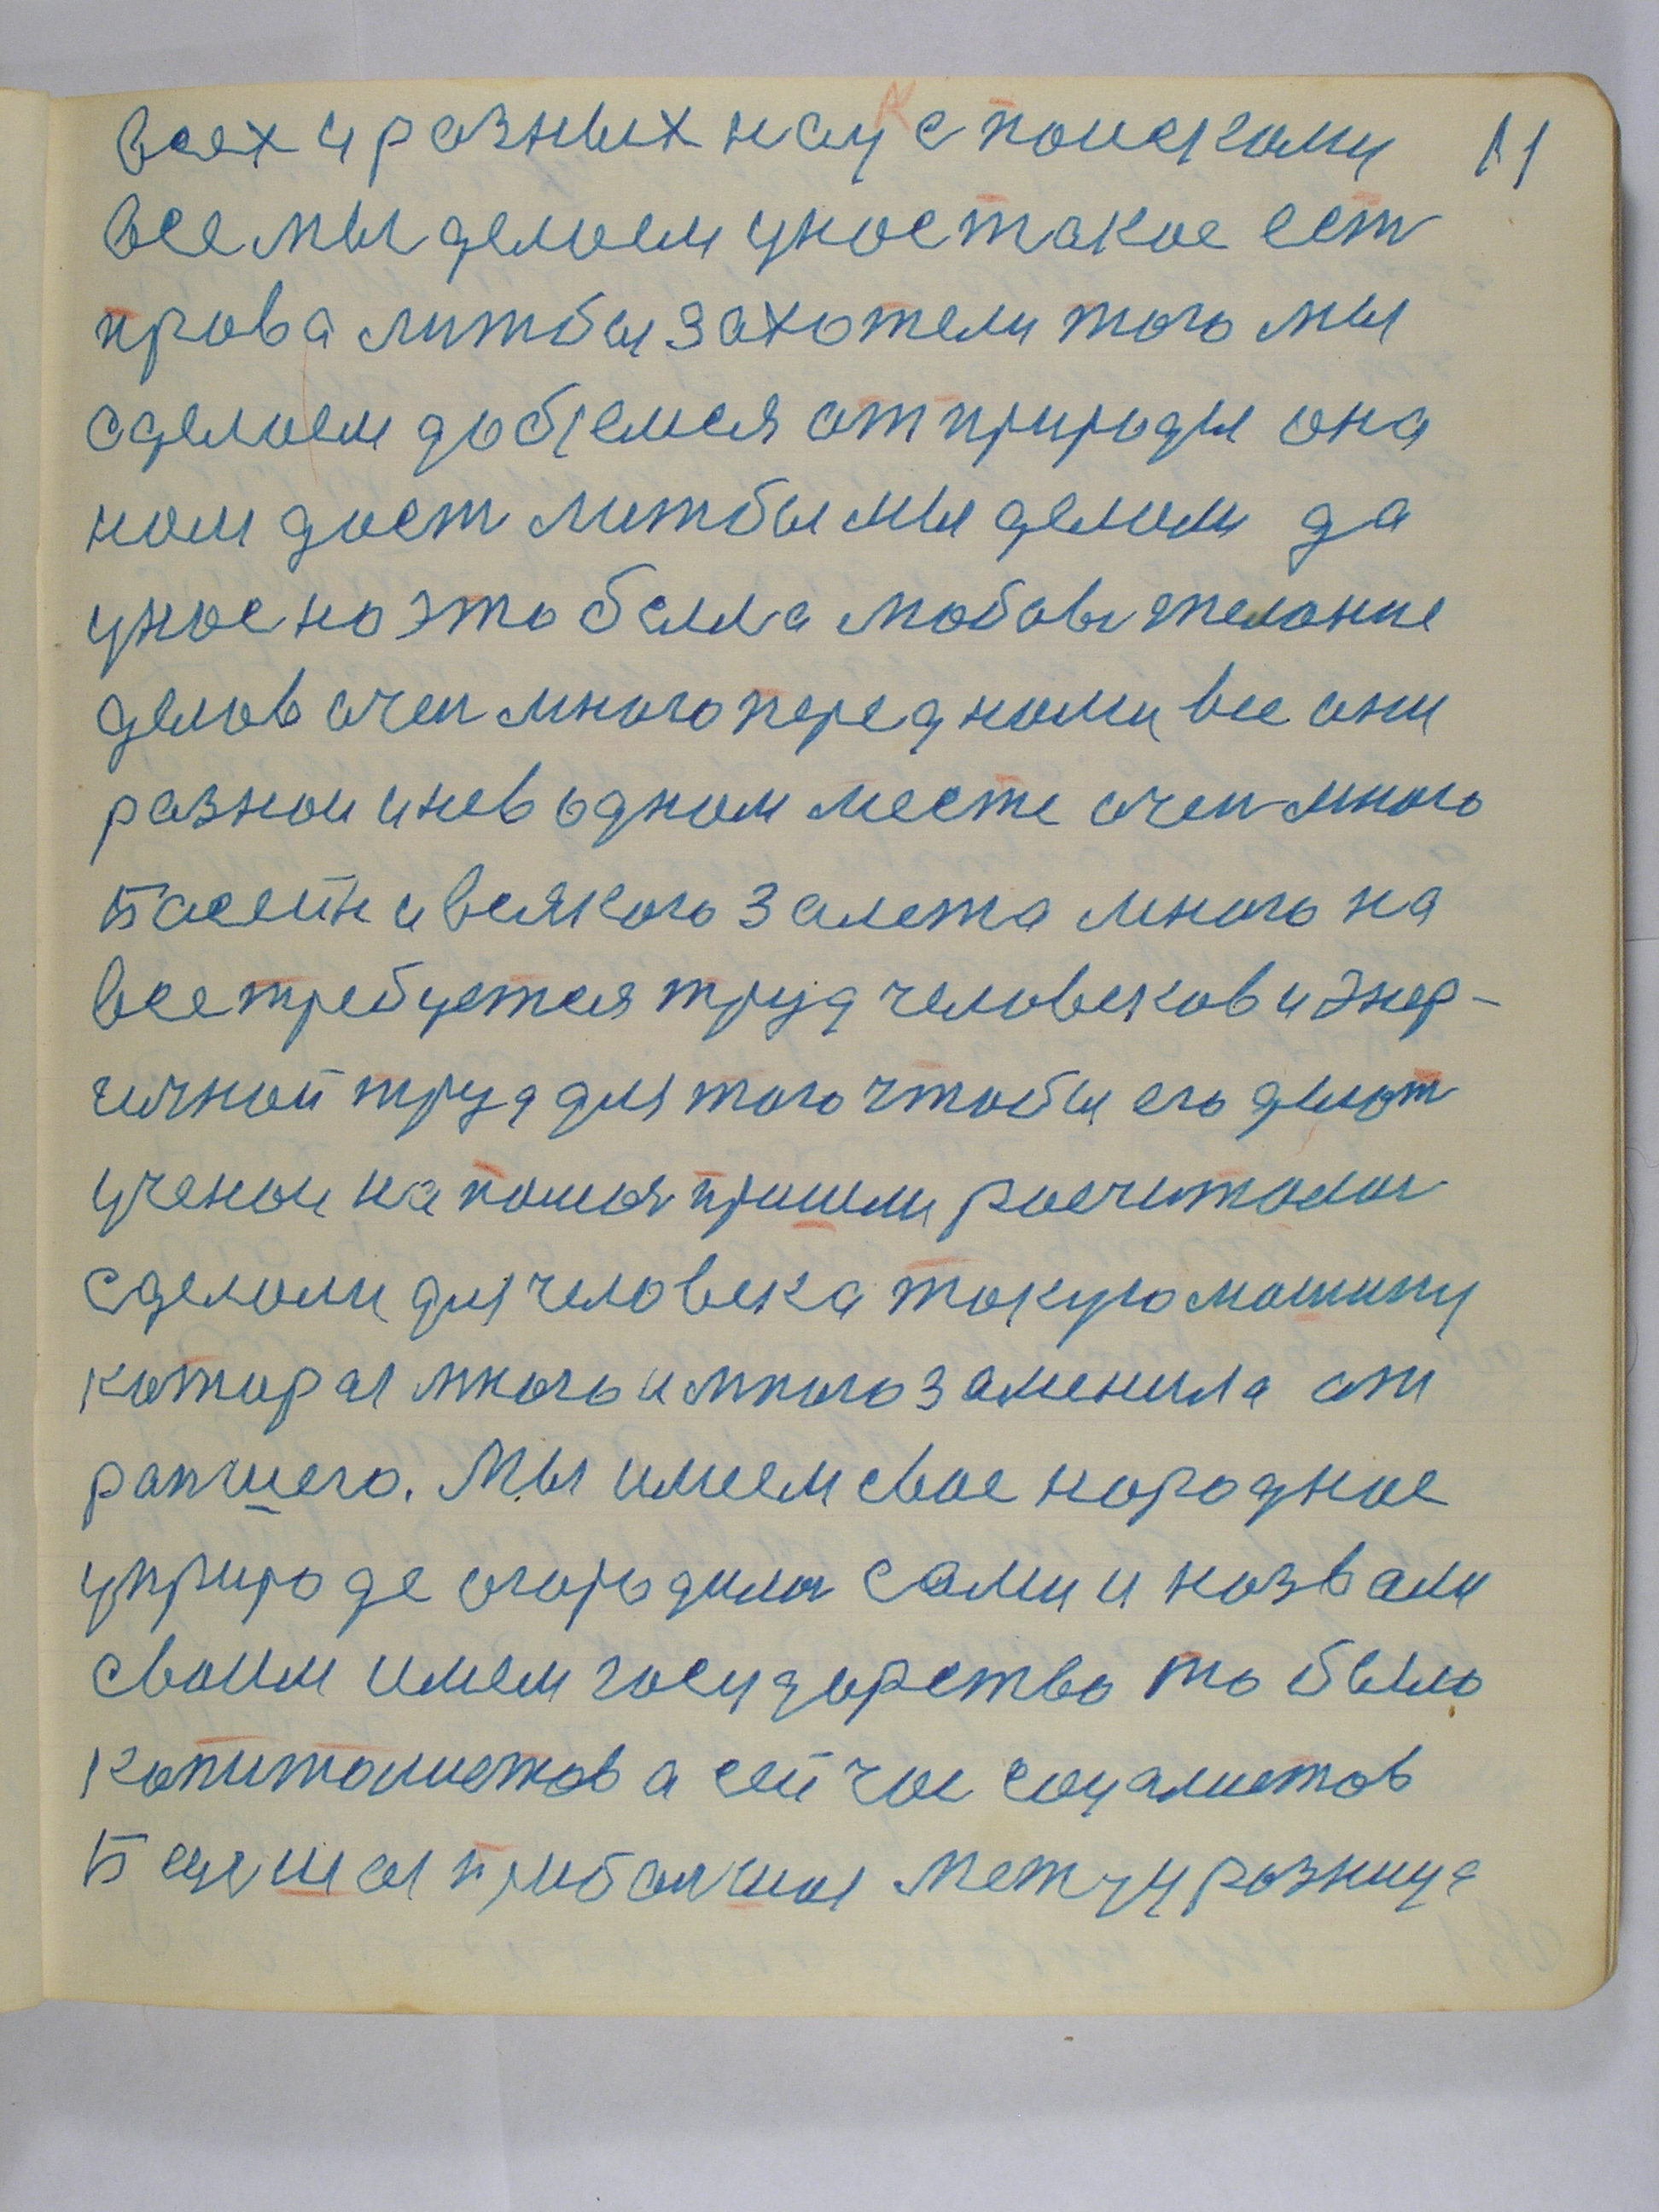 всех и разных наук с поисками 11
все мы делаем унас такое ест
права литбы захотели того мы
сделаем добемся от природы она
нам дает литбы мы делали да
унас на это была любовь желание
делов очен много перед нами все они
разнои и нев одном месте очен много
Басейн и всякого залета много на
все требуется труд человеков и энер-
гичной труд для того чтобы его делат
ученои на помоч пришли расчитали
сделали для человека такую машину
которая много и много заменила от
раншего. Мы имеем свое народное
уприроде огородили сами и назвали
своим имем государство то было
капиталистов а сейчас соцалистов
Бедная прибалшая между разница